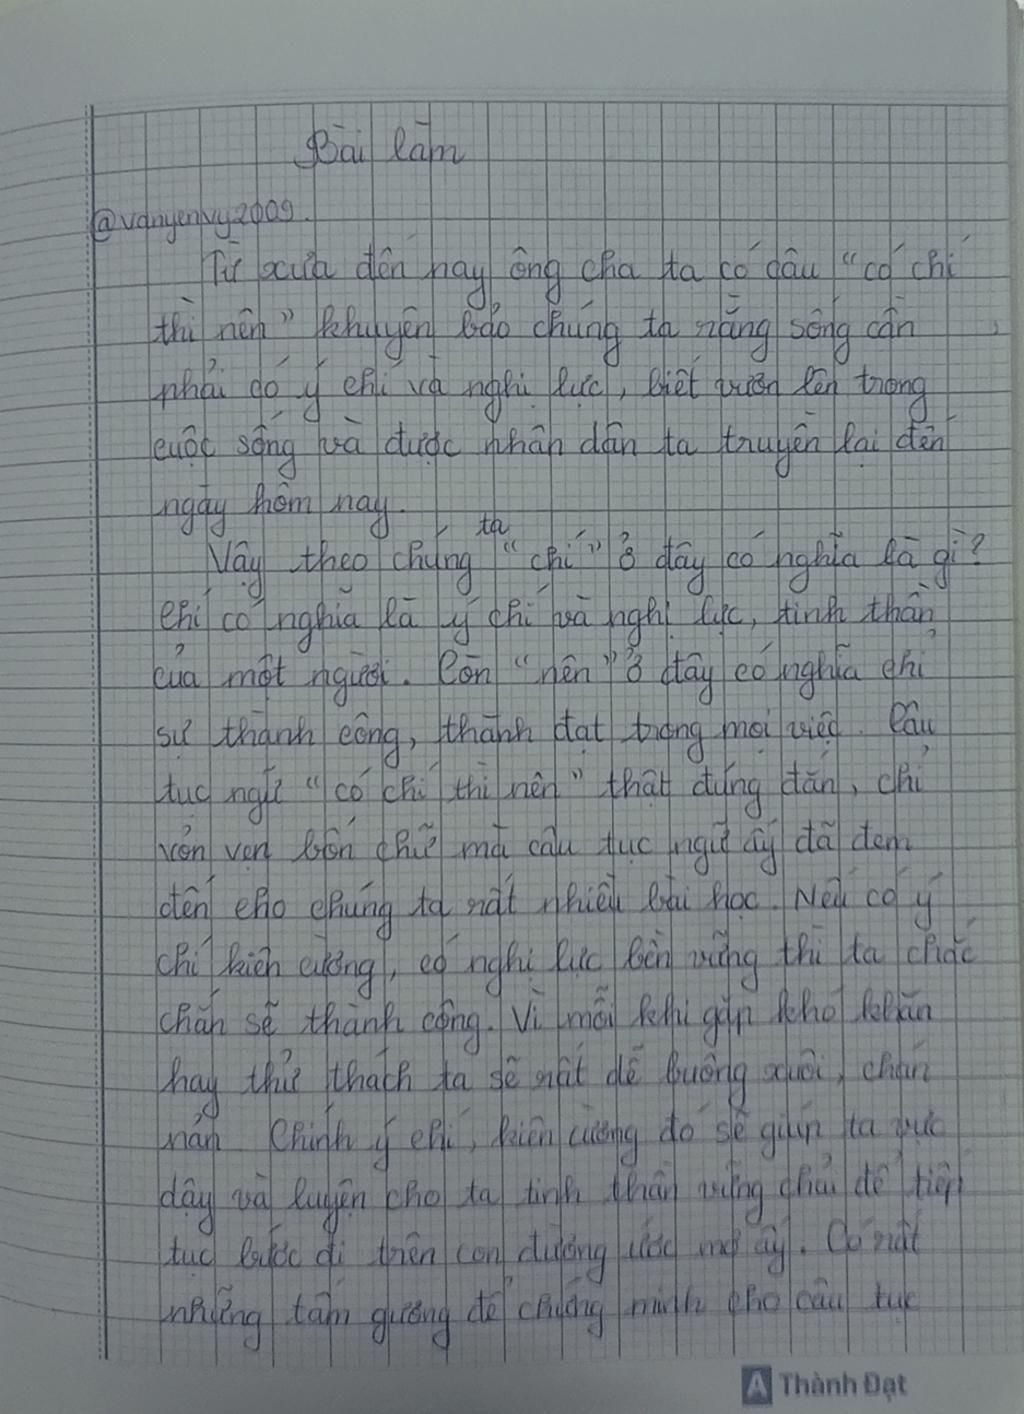 Bài làm
@vanyenvy2009.
Từ xưa đến nay ông cha ta có câu "có chí
thì nên" khuyên bảo chúng ta rằng sống cần
phải có ý chí và nghị lực, biết vươn lên trong
cuộc sống và được nhân dân ta truyền lại đến
ngày hôm nay.
Vậy theo chúng ta "chí" ở đây có nghĩa là gì?
Chí có nghĩa là ý chí và nghị lực, tinh thần
của một người. Còn "nên" ở đây có nghĩa chỉ
sự thành công, thành đạt trong mọi việc. Câu
tục ngữ "có chí thì nên" thật đúng đắn, chỉ
vỏn vẹn bốn chữ mà câu tục ngữ ấy đã đem
đến cho chúng ta rất nhiều bài học. Nếu có ý
chí kiên cường, có nghị lực bền vững thì ta chắc
chắn sẽ thành công. Vì mỗi khi gặp khó khăn
hay thử thách ta sẽ rất dễ buông xuôi, chán
nản. Chính ý chí, kiên cường đó sẽ giúp ta vực
dậy và luyện cho ta tinh thần vững chải để tiếp
tục bước đi trên con đường ước mơ ấy. Có rất
những tấm gương để chứng minh cho câu tục
A Thành Đạt